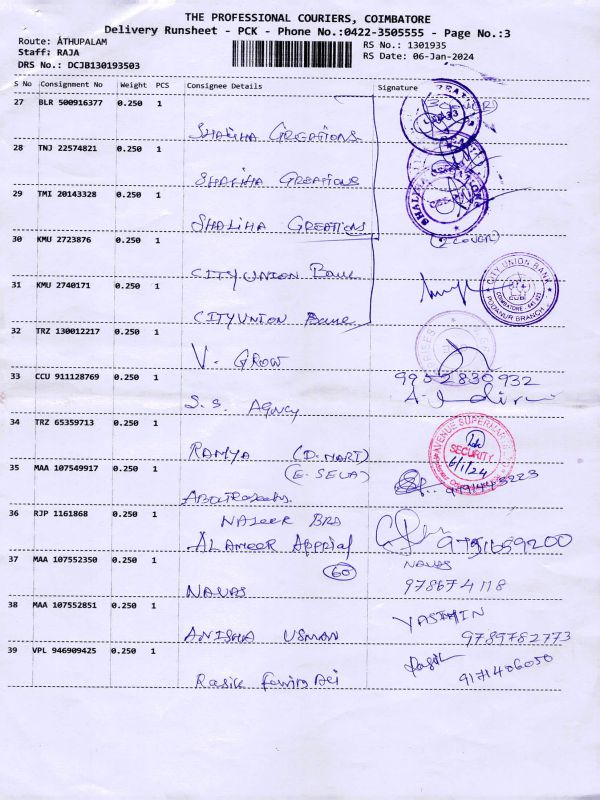 THE PROFESSIONAL COURIERS, COIMBATORE
Delivery Runsheet - PCK - Phone No.:0422-3505555 - Page No.:3
Route: ÁTHUPALAM
Staff: RAJA
DRS No.: DCJB130193503
RS No.: 1301935
RS Date: 06-Jan-2024
S No Consignment No Weight PCS Consignee Details Signature
27 BLR 500916377 0.250 1
(3 COVER)
SHALIHA CREATIONS
28 TNJ 22574821 0.250 1
SHALIHA CREATIONS
29 TMI 20143328 0.250 1
SHALIHA CREATIONS
30 KMU 2723876 0.250 1 (2 COVER)
CITY UNION Bank
31 KMU 2740171 0.250 1
CITY UNION BANK
COIMBATORE - 641 023
CUB
PODANUR BRANCH
CITY UNION Bank
32 TRZ 130012217 0.250 1
V. GROW
33 CCU 911128769 0.250 1 9952830932
S. S. Agncy
34 TRZ 65359713 0.250 1
AVENUE SUPERMARTS
SECURITY
6/1/24
RAMYA (D. MART)
35 MAA 107549917 0.250 1 (E. SEVA)
36 RJP 1161868 0.250 1 NAJEER BRO
AL AMEER Apprial 9751659200
37 MAA 107552350 0.250 1 (60) NAVAS
NAVAS 978674118
38 MAA 107552851 0.250 1 YASMIN
ANISHA USMAN 9789782773
39 VPL 946909425 0.250 1
9171406050
Rasik